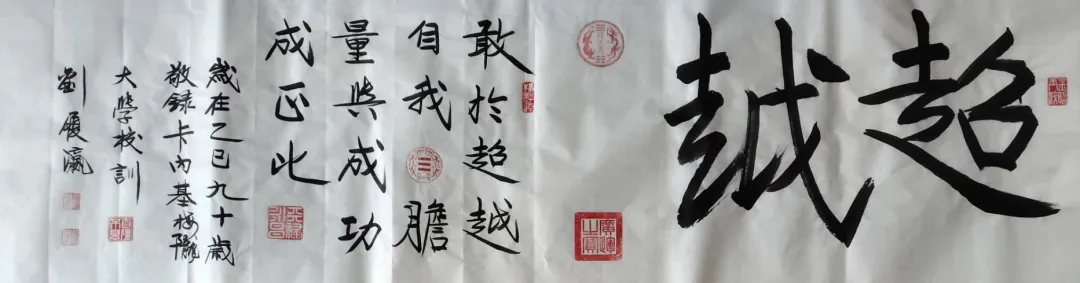 超越
廣運之寶
敢於超越
自我膽
量與成功
成正比
歲在乙巳九十歲
敬錄卡內基梅隴
大學校訓
劉履瀛